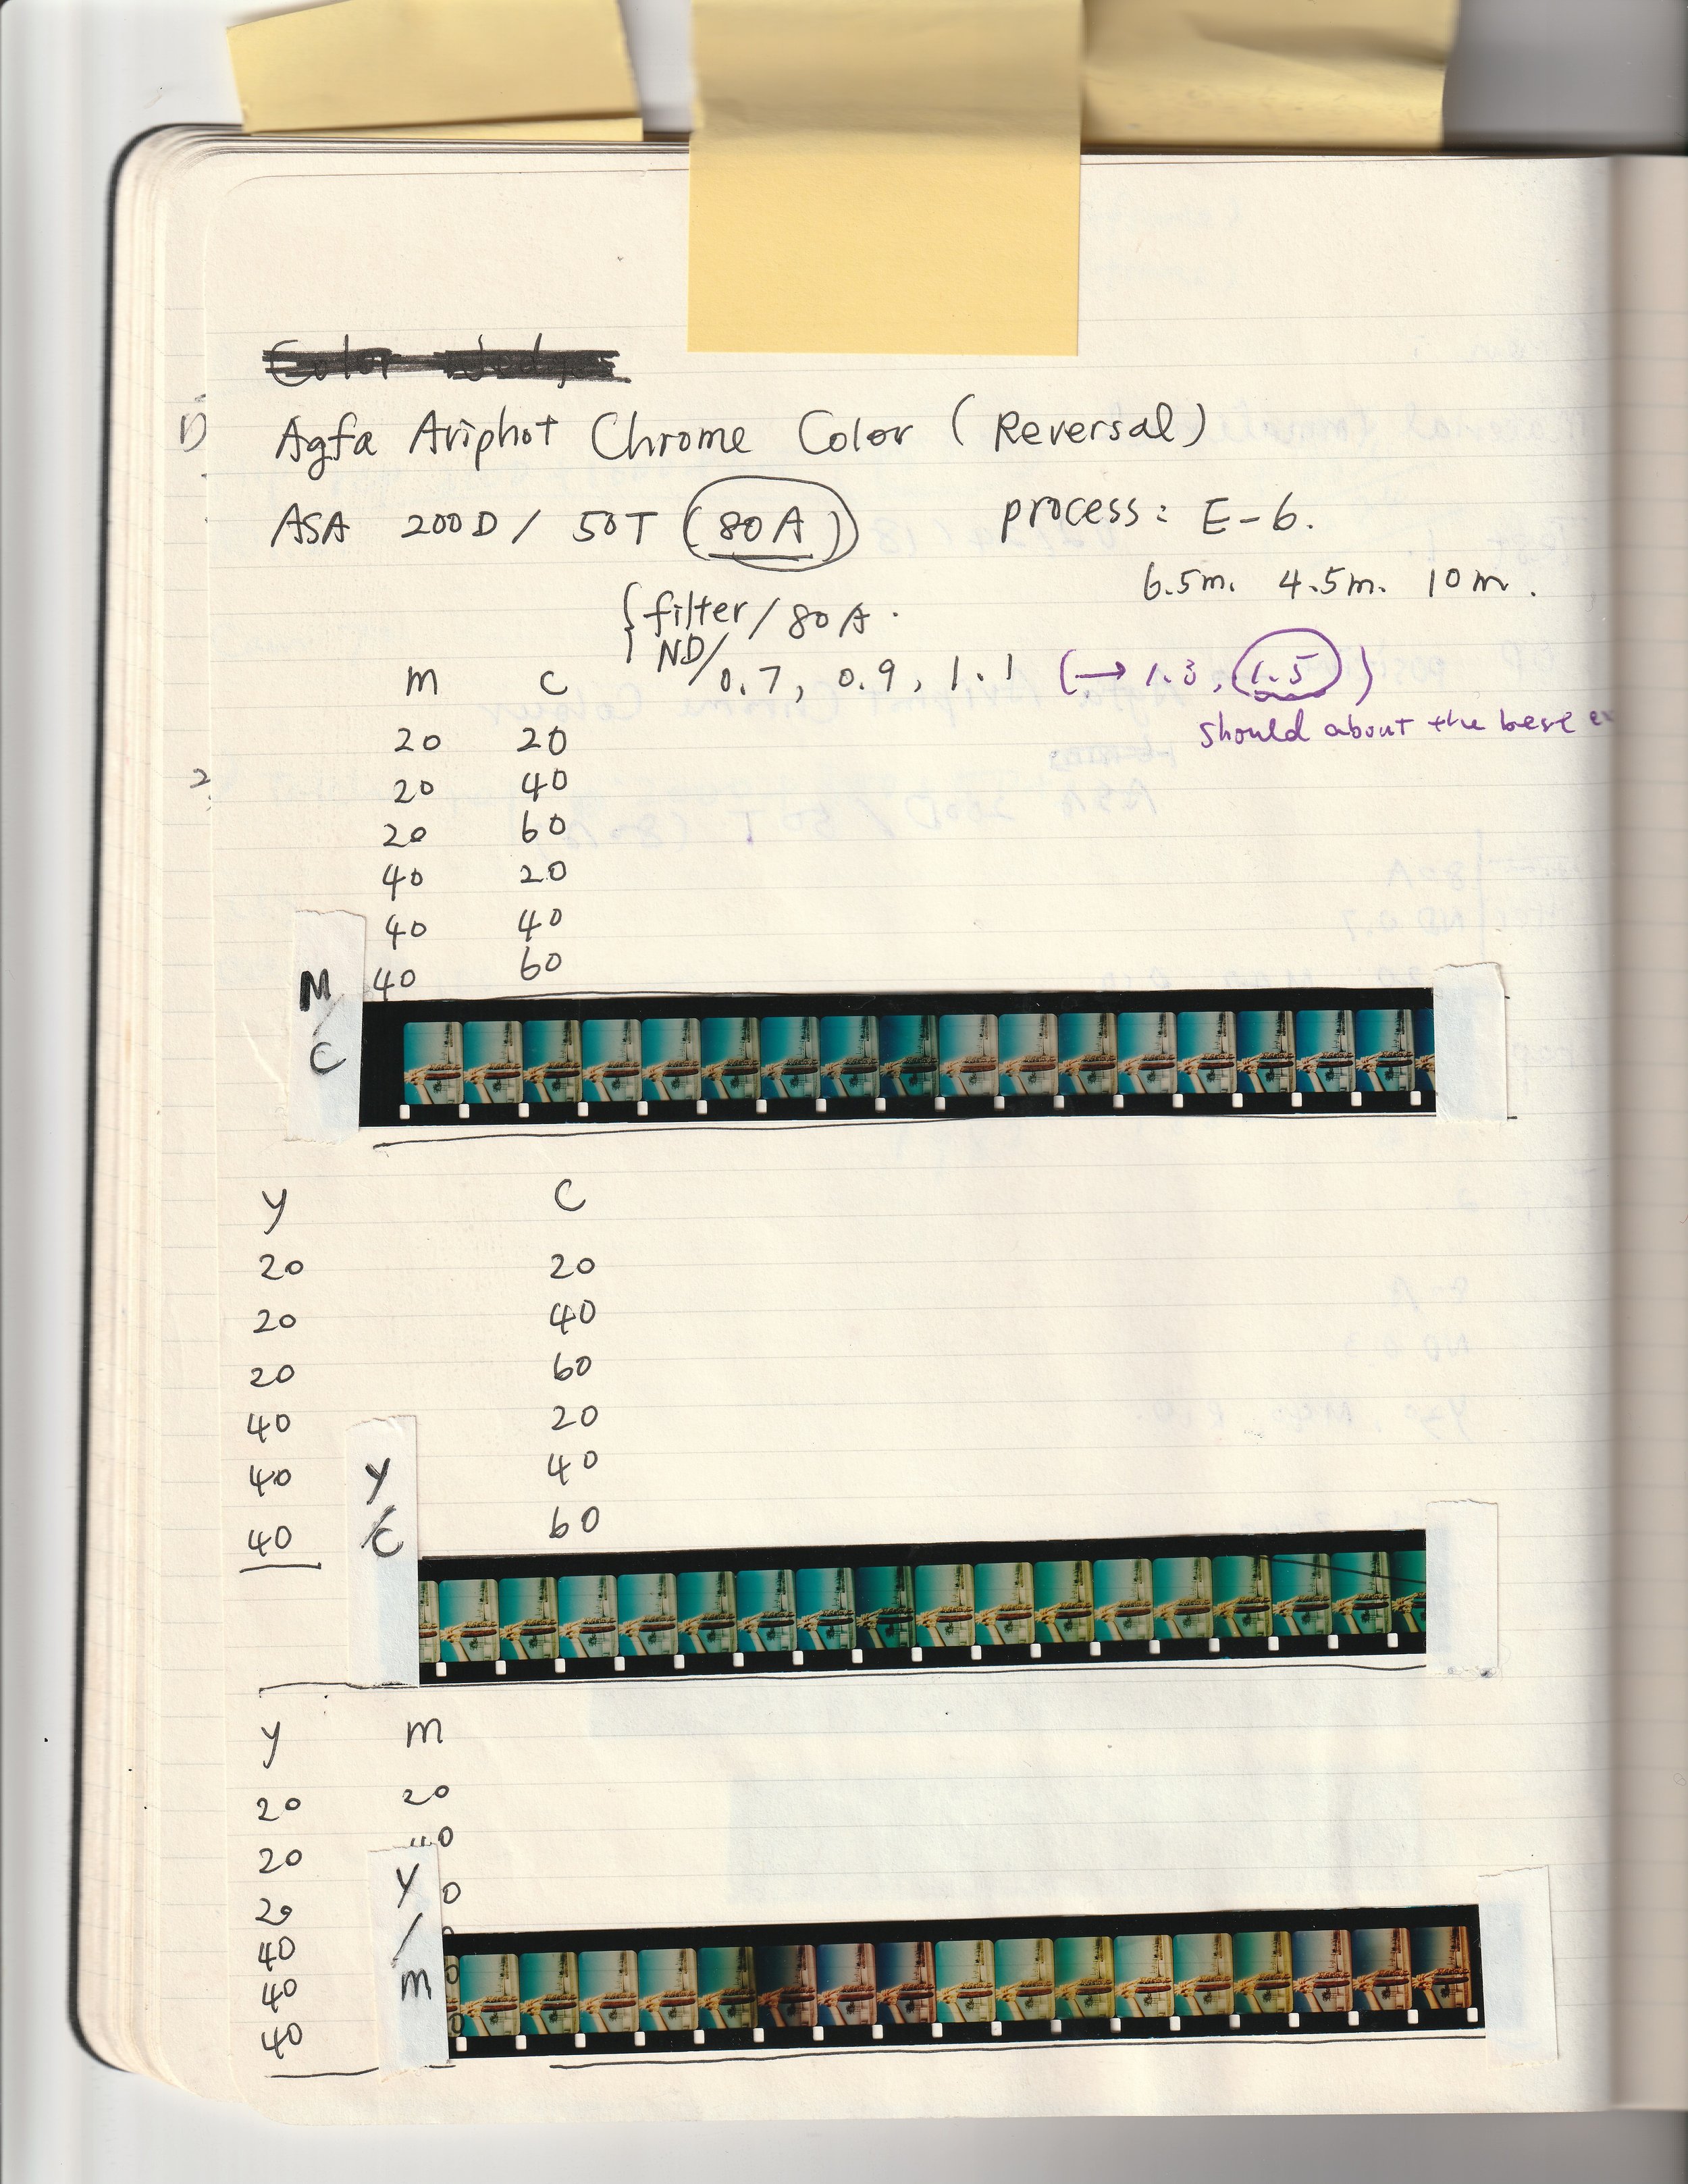 Agfa Aviphot Chrome Color (Reversal)
ASA 200D / 50T (80A) process: E-6.
6.5m. 4.5m. 10m.
filter / 80A.
ND / 0.7, 0.9, 1.1 (→ 1.3, 1.5)
should about the best
M C
20 20
20 40
20 60
40 20
40 40
40 60
M / C
Y C
20 20
20 40
20 60
40 20
40 40
40 60
Y / C
Y M
20 20
20
20
40
40
40
Y / M